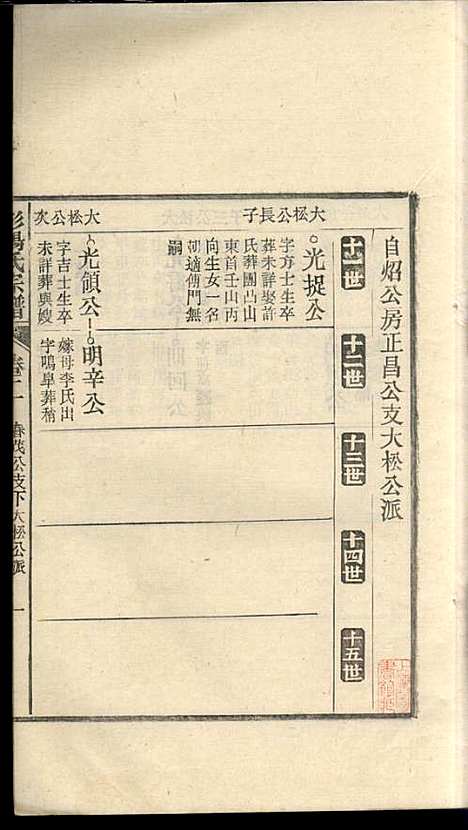 自炤公房正昌公支大松公派
十一世
十二世
十三世
十四世
十五世
大松公長子
光捉公
字方士生卒
葬未詳娶許
氏葬團凸山
東首壬山丙
向生女一名
適傅門無
嗣
大松公次
光領公
字吉士生卒
未詳葬與嫂
明辛公
嫁母李氏出
字鳴皐葬稍
楊氏宗譜
卷十一
春茂公支下大松公派
一